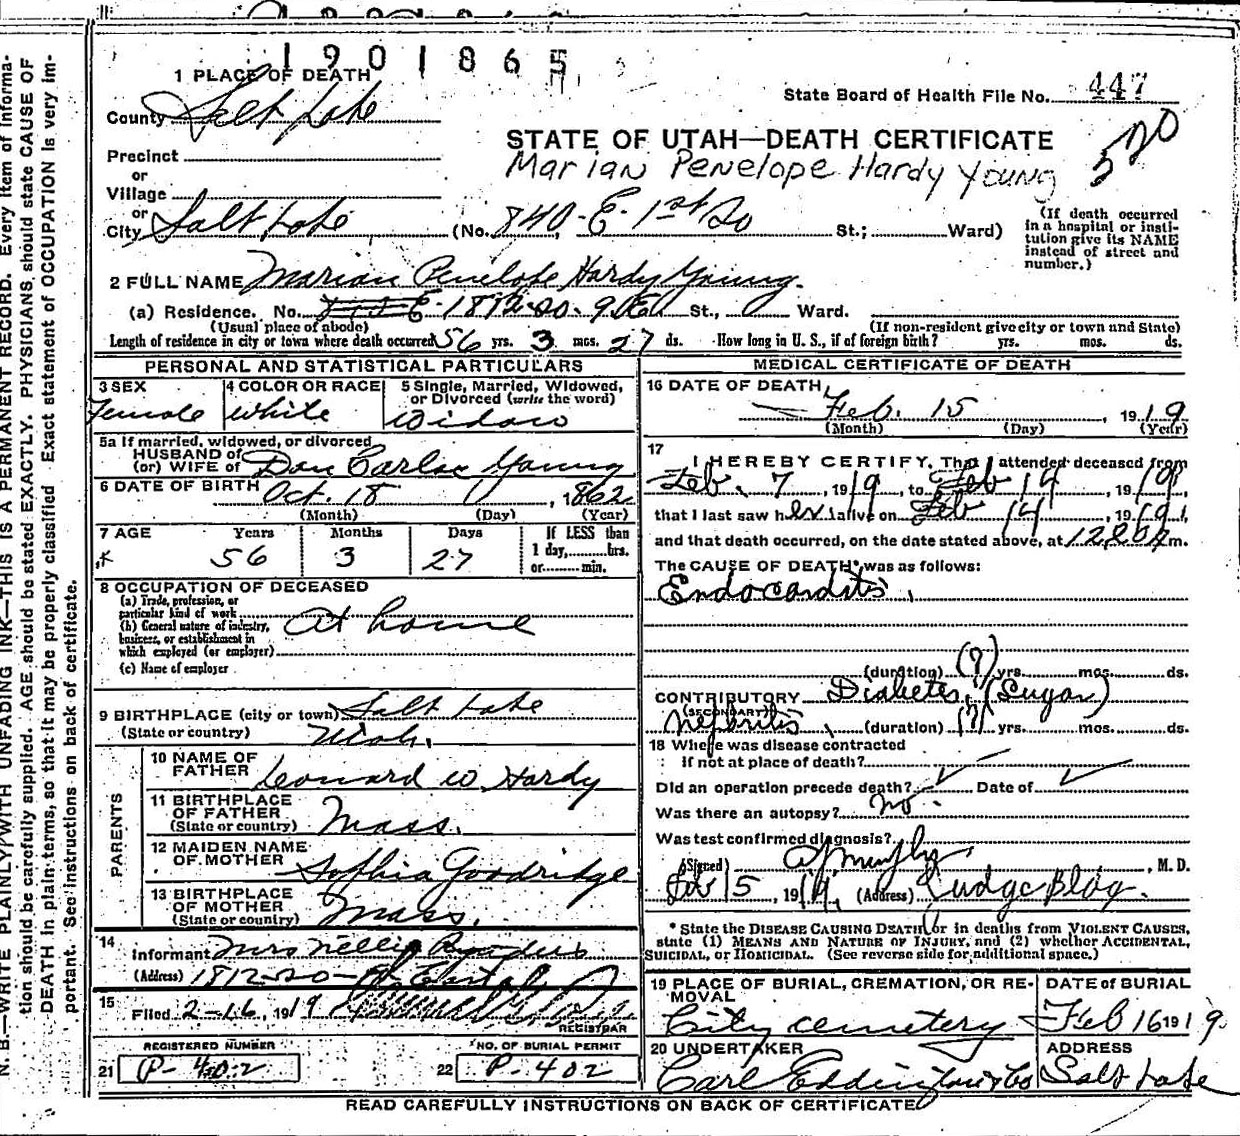 1901865
1 PLACE OF DEATH
State Board of Health File No. 447
County Salt Lake
STATE OF UTAH—DEATH CERTIFICATE
520
Precinct
Marian Penelope Hardy Young
or
Village
or
City Salt Lake (No. 840 E. 1st So St.; Ward)
(If death occurred in a hospital or institution give its NAME instead of street and number.)
2 FULL NAME Marian Penelope Hardy Young.
(a) Residence. No. 1812 So. 9 E St., Ward.
(Usual place of abode) (If non-resident give city or town and State)
Length of residence in city or town where death occurred 56 yrs. 3 mos. 27 ds. How long in U. S., if of foreign birth? yrs. mos. ds.
PERSONAL AND STATISTICAL PARTICULARS
3 SEX
Female
4 COLOR OR RACE
White
5 Single, Married, Widowed, or Divorced (write the word)
Widow
5a If married, widowed, or divorced
HUSBAND of
(or) WIFE of Don Carlos Young
6 DATE OF BIRTH Oct. 18, 1862
(Month) (Day) (Year)
7 AGE Years Months Days If LESS than
56 3 27 1 day, hrs.
or min.
8 OCCUPATION OF DECEASED
(a) Trade, profession, or
particular kind of work At home
(b) General nature of industry,
business, or establishment in
which employed (or employer)
(c) Name of employer
9 BIRTHPLACE (city or town) Salt Lake
(State or country) Utah.
PARENTS
10 NAME OF FATHER Leonard W. Hardy
11 BIRTHPLACE OF FATHER
(State or country) Mass.
12 MAIDEN NAME OF MOTHER Sophia Goodridge
13 BIRTHPLACE OF MOTHER
(State or country) Mass.
14 Informant Mrs Nellie
(Address) 1812-So-
15 Filed 2-16, 1919
REGISTRAR
REGISTERED NUMBER NO. OF BURIAL PERMIT
21 P-402 22 P-402
MEDICAL CERTIFICATE OF DEATH
16 DATE OF DEATH
Feb. 15, 1919
(Month) (Day) (Year)
17 I HEREBY CERTIFY, That I attended deceased from
Feb. 7, 1919, to Feb 14, 1919,
that I last saw her alive on Feb 14, 1919,
and that death occurred, on the date stated above, at m.
The CAUSE OF DEATH* was as follows:
Endocarditis,
(duration) (?) yrs. mos. ds.
CONTRIBUTORY Diabetes, (Sugar)
(SECONDARY)
Nephritis (duration) (?) yrs. mos. ds.
18 Where was disease contracted
if not at place of death?
Did an operation precede death? Date of
Was there an autopsy? no.
Was test confirmed diagnosis?
(Signed) Murphy, M. D.
Feb 15, 1919, (Address) Judge Bldg.
* State the DISEASE CAUSING DEATH, or in deaths from VIOLENT CAUSES,
state (1) MEANS AND NATURE OF INJURY, and (2) whether ACCIDENTAL,
SUICIDAL, or HOMICIDAL. (See reverse side for additional space.)
19 PLACE OF BURIAL, CREMATION, OR REMOVAL
City cemetery
DATE of BURIAL
Feb 16 1919.
20 UNDERTAKER
Carl
ADDRESS
Salt Lake
READ CAREFULLY INSTRUCTIONS ON BACK OF CERTIFICATE
N. B.—WRITE PLAINLY WITH UNFADING INK—THIS IS A PERMANENT RECORD. Every item of informa-
tion should be carefully supplied. AGE should be stated EXACTLY. PHYSICIANS should state CAUSE OF
DEATH in plain terms, so that it may be properly classified. Exact statement of OCCUPATION is very im-
portant. See instructions on back of certificate.